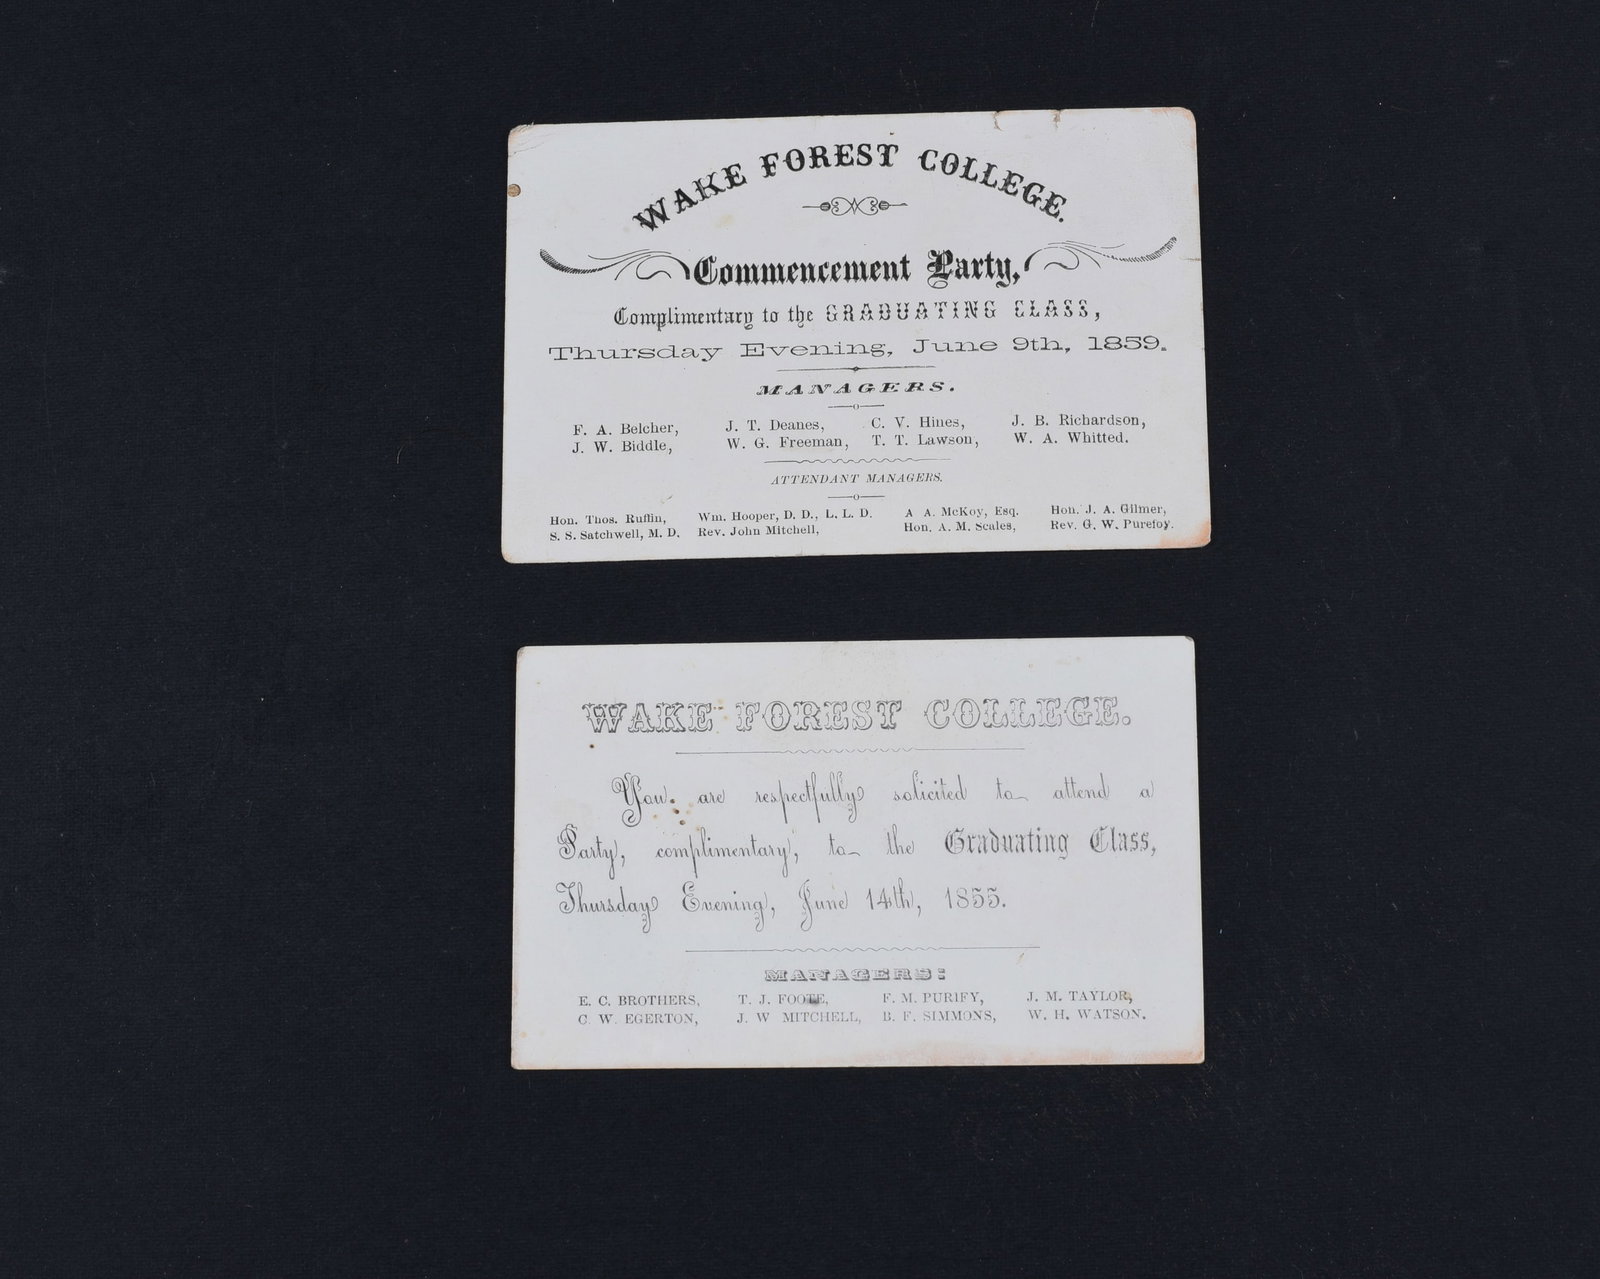 WAKE FOREST COLLEGE.
Commencement Party,
Complimentary to the GRADUATING CLASS,
Thursday Evening, June 9th, 1859.
MANAGERS.
F. A. Belcher, J. T. Deanes, C. V. Hines, J. B. Richardson,
J. W. Biddle, W. G. Freeman, T. T. Lawson, W. A. Whitted.
ATTENDANT MANAGERS.
Hon. Thos. Ruffin, Wm. Hooper, D. D., L. L. D. A A. McKoy, Esq. Hon. J. A. Gilmer,
S. S. Satchwell, M. D. Rev. John Mitchell, Hon. A. M. Scales, Rev. G. W. Purefoy.
WAKE FOREST COLLEGE.
You are respectfully solicited to attend a
Party, complimentary, to the Graduating Class,
Thursday Evening, June 14th, 1855.
MANAGERS:
E. C. BROTHERS, T. J. FOOTE, F. M. PURIFY, J. M. TAYLOR,
C. W. EGERTON, J. W MITCHELL, B. F. SIMMONS, W. H. WATSON.